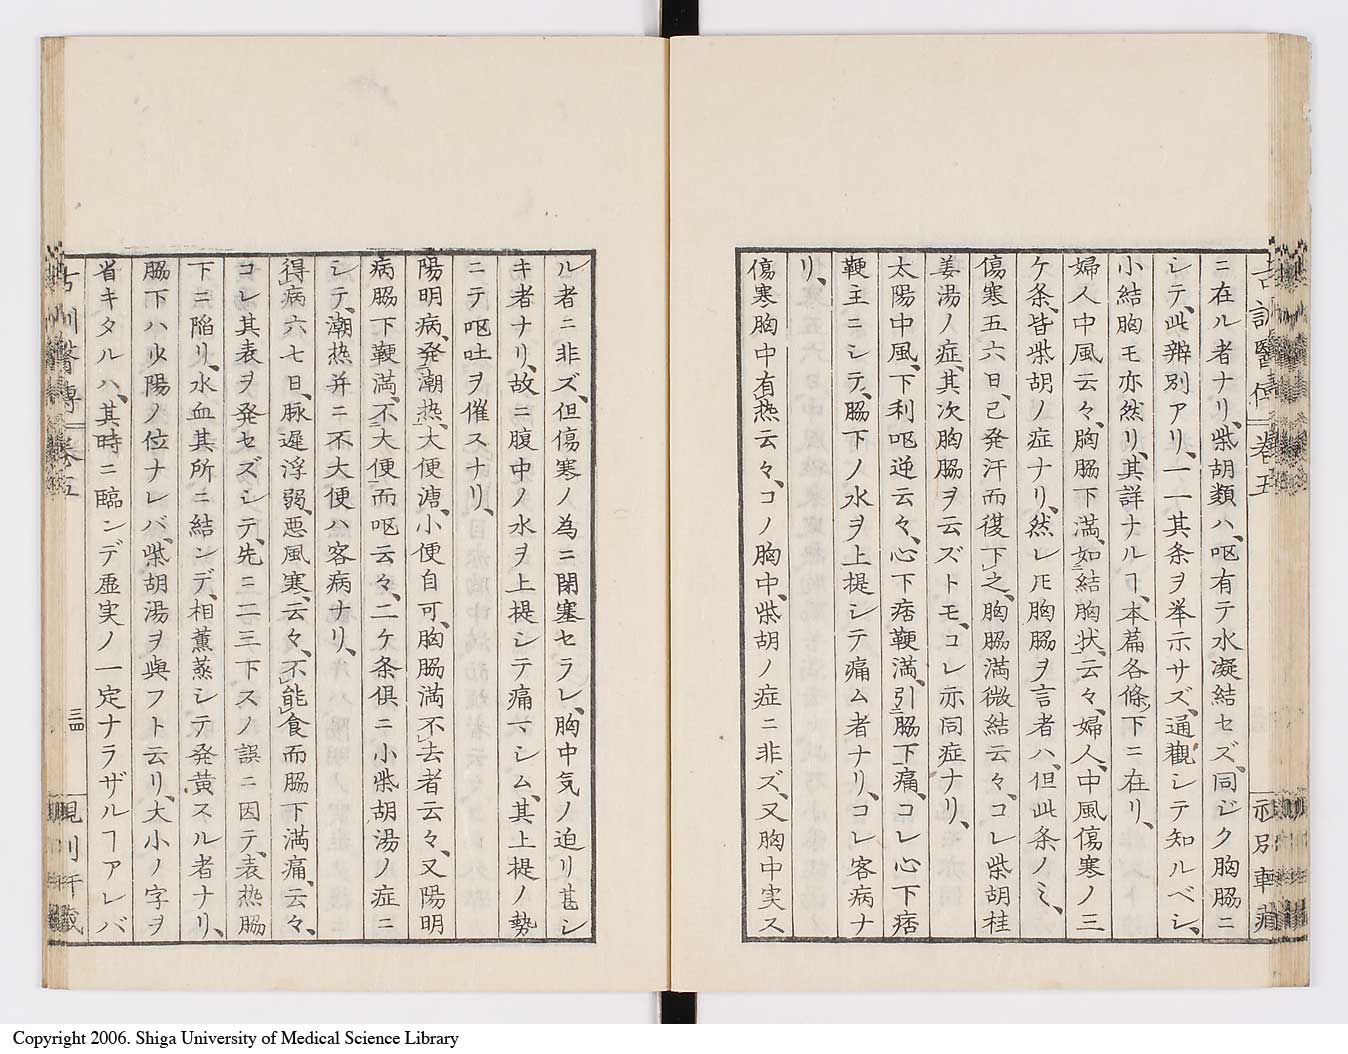 ニ在ル者ナリ、柴胡類ハ、呕有テ水凝結セズ、同ジク胸脇ニ
シテ、此辨別アリ、一一其条ヲ挙示サズ、通觀シテ知ルベシ、
小結胸モ亦然リ、其詳ナルヿ、本篇各條下ニ在リ、
婦人中風云々、胸脇下満、如結胸状、云々、婦人中風傷寒ノ三
ケ条、皆柴胡ノ症ナリ、然レ𪜈胸脇ヲ言者ハ、但此条ノミ、
傷寒五六日、已発汗而復下之、胸脇満微結云々、コレ柴胡桂
姜湯ノ症、其次胸脇ヲ云ズトモ、コレ亦同症ナリ、
太陽中風、下利呕逆云々、心下痞鞕満、引脇下痛、コレ心下痞
鞕主ニシテ、脇下ノ水ヲ上提シテ痛ム者ナリ、コレ客病ナ
リ、
傷寒胸中有熱云々、コノ胸中、柴胡ノ症ニ非ズ、又胸中実ス
ル者ニ非ズ、但傷寒ノ為ニ閉塞セラレ、胸中気ノ迫リ甚シ
キ者ナリ、故ニ腹中ノ水ヲ上提シテ痛マシム、其上提ノ勢
ニテ呕吐ヲ催スナリ、
陽明病、発潮热、大便溏、小便自可、胸脇満不去者云々、又陽明
病脇下鞕満、不大便而呕云々、二ケ条俱ニ小柴胡湯ノ症ニ
シテ、潮热并ニ不大便ハ客病ナリ、
得病六七日、脉遲浮弱、悪風寒、云々、不能食而脇下満痛、云々、
コレ其表ヲ発セズシテ、先ニ二三下スノ誤ニ因テ、表热脇
下ニ陷リ、水血其所ニ結ンデ、相薫蒸シテ発黄スル者ナリ、
脇下ハ少陽ノ位ナレバ、柴胡湯ヲ與フト云リ、大小ノ字ヲ
省キタルハ、其時ニ臨ンデ虚実ノ一定ナラザルヿアレバ
三四
Copyright 2006. Shiga University of Medical Science Library